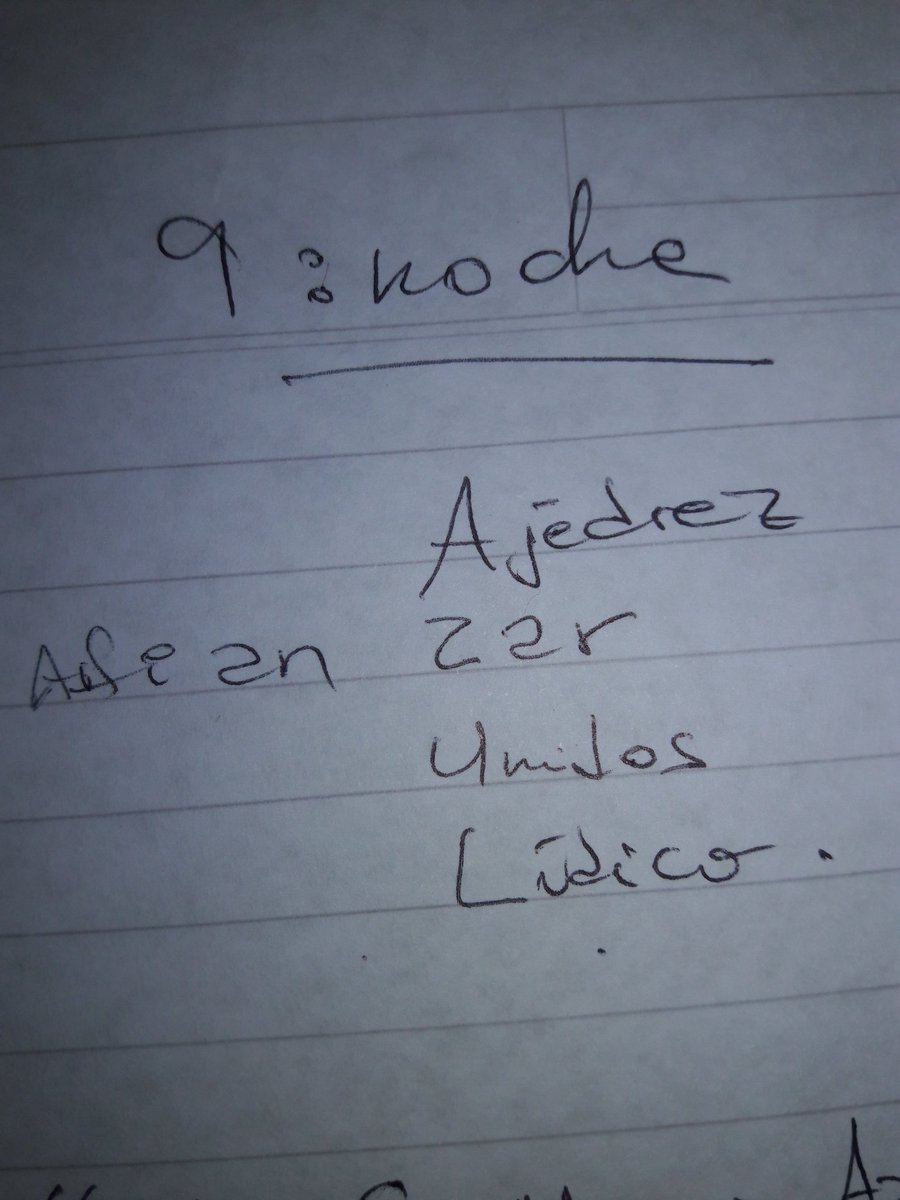 9:noche
Ajedrez
Afian zar
Unidos
Lúdico.